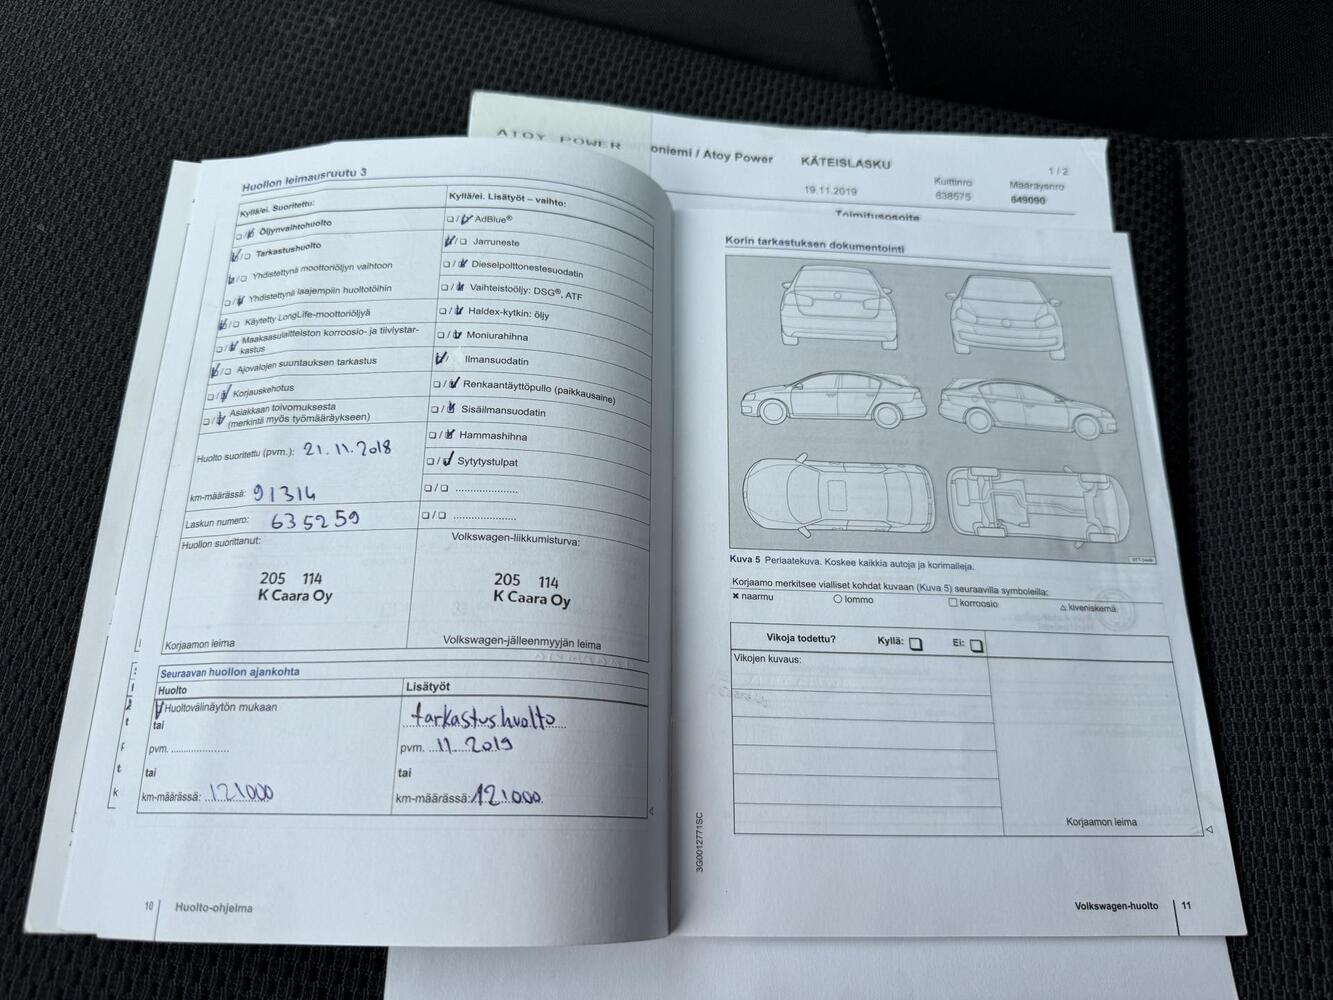 ATOY POWER
oniemi / Atoy Power
KÄTEISLASKU
1 / 2
19.11.2019
Kuittinro
638575
Määräysnro
649090
Toimitusosoite
Huollon leimausruutu 3
Kyllä/ei. Suoritettu:
Öljynvaihtohuolto
Tarkastushuolto
Yhdistettynä moottoriöljyn vaihtoon
Yhdistettynä laajempiin huoltotöihin
Käytetty LongLife-moottoriöljyä
Maakaasulaitteiston korroosio- ja tiiviystar-
kastus
Ajovalojen suuntauksen tarkastus
Korjauskehotus
Asiakkaan toivomuksesta
(merkintä myös työmääräykseen)
Huolto suoritettu (pvm.): 21.11.2018
km-määrässä: 91314
Laskun numero: 635259
Huollon suorittanut:
205 114
K Caara Oy
Korjaamon leima
Kyllä/ei. Lisätyöt – vaihto:
AdBlue®
Jarruneste
Dieselpolttonestesuodatin
Vaihteistoöljy: DSG®, ATF
Haldex-kytkin: öljy
Moniurahihna
Ilmansuodatin
Renkaantäyttöpullo (paikkausaine)
Sisäilmansuodatin
Hammashihna
Sytytystulpat
Volkswagen-liikkumisturva:
205 114
K Caara Oy
Volkswagen-jälleenmyyjän leima
Seuraavan huollon ajankohta
Huolto
Huoltovälinäytön mukaan
tai
pvm.
tai
km-määrässä: 121000
Lisätyöt
tarkastushuolto
pvm. 11.2019
tai
km-määrässä: 121000
10 Huolto-ohjelma
Korin tarkastuksen dokumentointi
Kuva 5 Periaatekuva. Koskee kaikkia autoja ja korimalleja.
Korjaamo merkitsee vialliset kohdat kuvaan (Kuva 5) seuraavilla symboleilla:
naarmu
lommo
korroosio
kiveniskemä
Vikoja todettu? Kyllä: Ei:
Vikojen kuvaus:
Korjaamon leima
3G0012771SC
Volkswagen-huolto 11